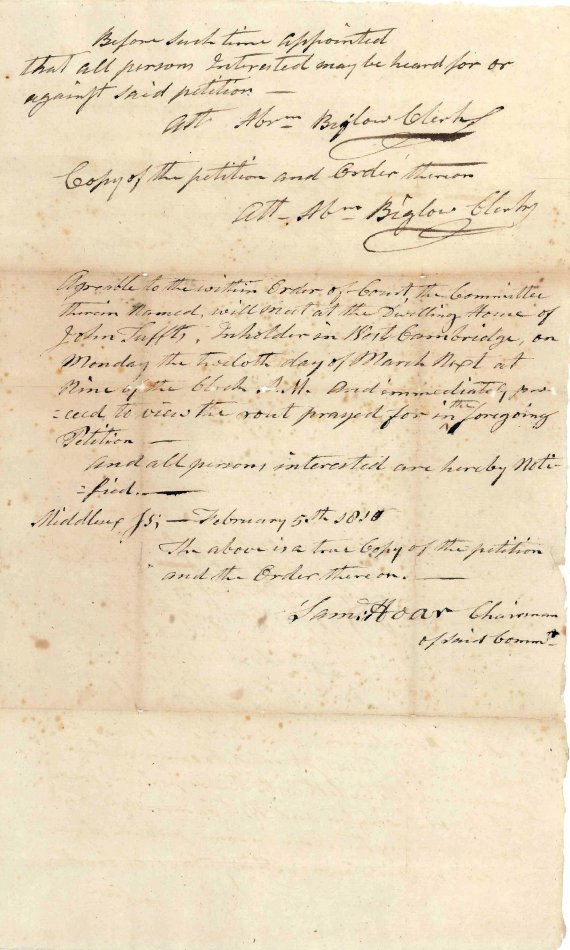 Before such time appointed
that all persons Interested may be heard for or
against said petition —
Att Abrm Biglow Clerk
Copy of the petition and Order thereon
Att- Abm Biglow Clerk
Agreeble to the within Order of Court, the Committee
therein Named, will meet at the Dwelling House of
John Tuffts, Inholder in West Cambridge, on
Monday the twelvth day of March Next at
Nine of the Clock A.M. And immediately pro=
=ceed to view the rout prayed for in the foregoing
Petition —
And all persons interested are hereby Noti=
=fied. —
Middlesex Ss; — February 5th 1810
The above is a true Copy of the petition
and the Order thereon. —
Saml: Hoar Chairman
of said Commtt